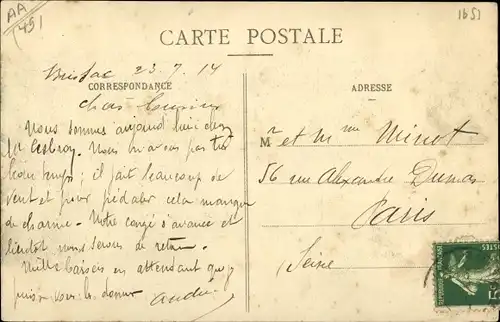 AA
(45)
1651
CARTE POSTALE
Brissac 23.7.14
CORRESPONDANCE
ADRESSE
Chers Cousins
Nous sommes aujourd'hui chez
Mr Cesbron. Nous n'avons pas très
beau temps; il fait beaucoup de
vent et pour pédaler cela manque
de charme. Notre congé s'avance et
bientôt nous serons de retour.
Mille baisers en attendant que je
puisse vous les donner
André
Mr et Mme Minot
56 rue Alexandre Dumas
Paris
Seine
5